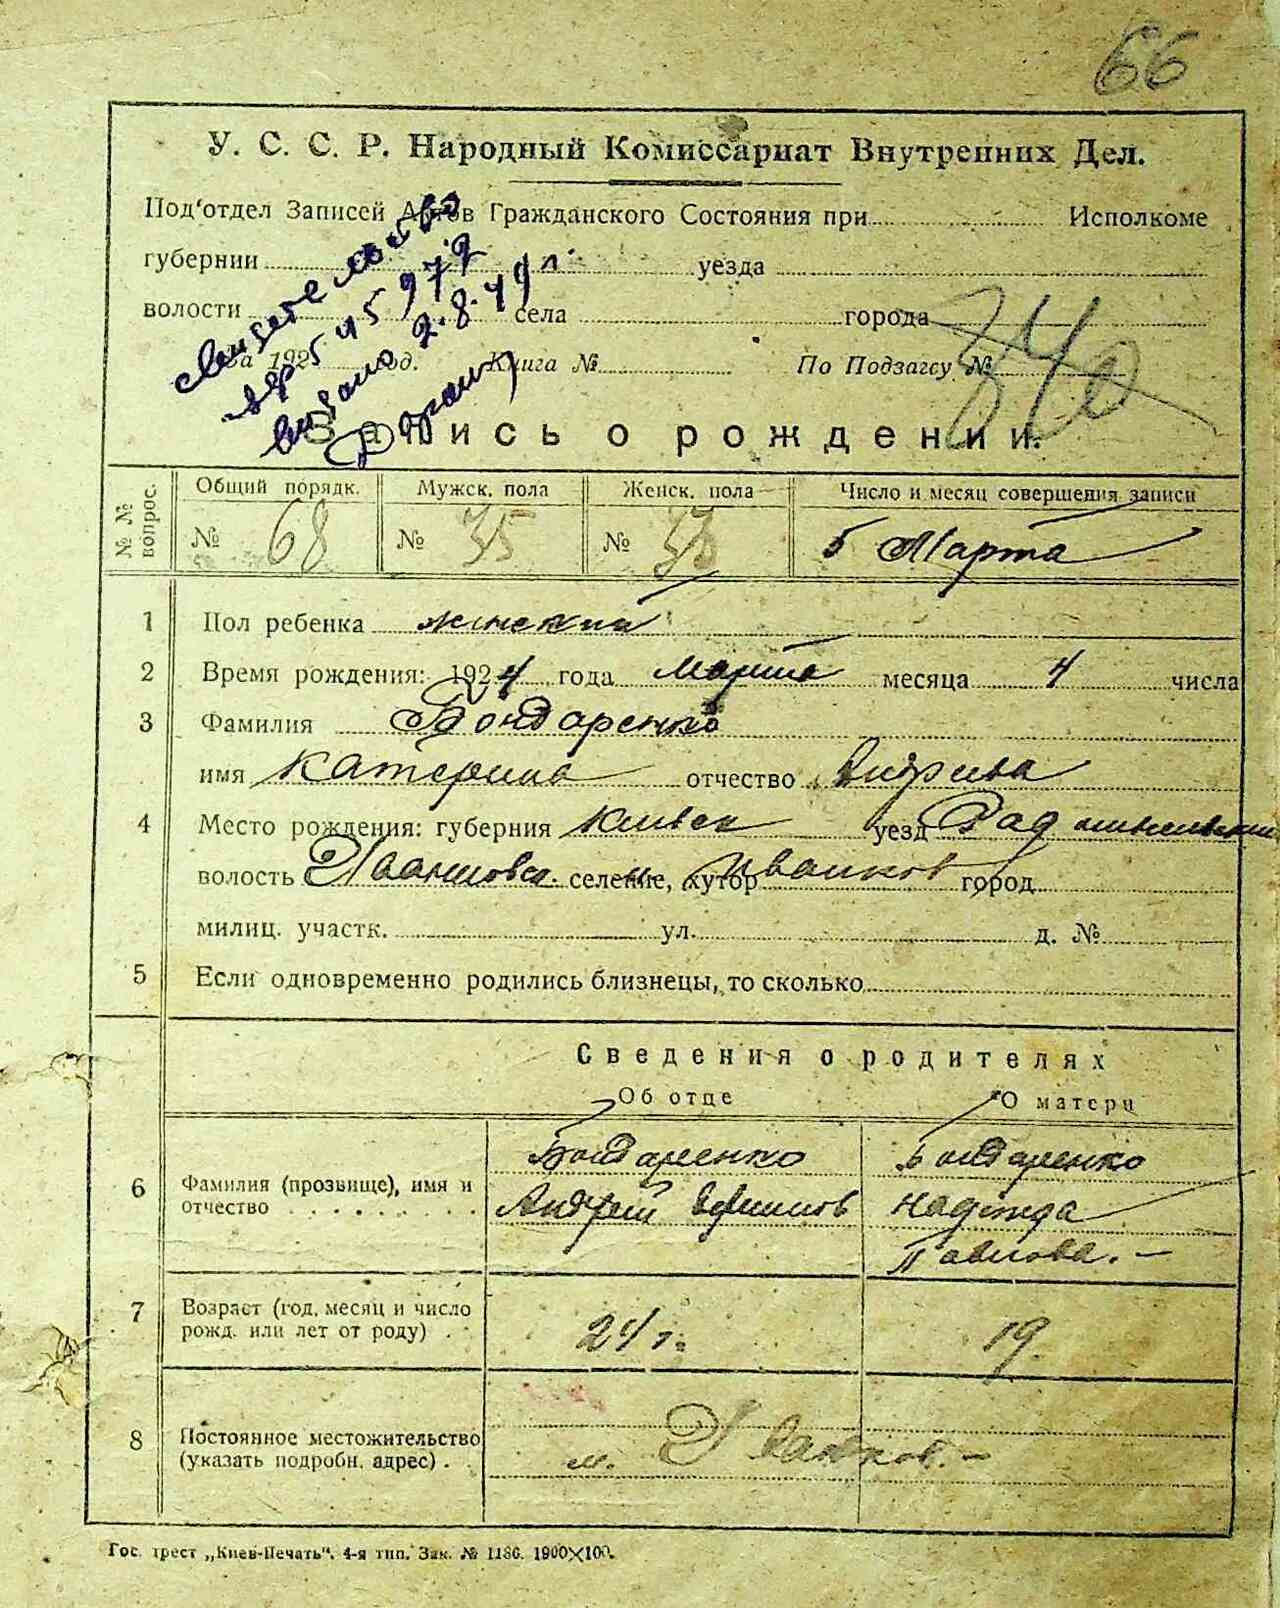 66
У. С. С. Р. Народный Комиссариат Внутренних Дел.
Под‘отдел Записей Актов Гражданского Состояния при Исполкоме
губернии уезда
волости села города
За 192 год. Книга № По Подзагсу №
свидетельство
545972
выдано 2.8.49 г.
Запись о рождении.
№ № вопрос.
Общий порядк. Мужск. пола Женск. пола Число и месяц совершения записи
№ 68 № 35 № 33 5 Марта
1 Пол ребенка женский
2 Время рождения: 1924 года Марта месяца 4 числа
3 Фамилия Бондаренко
имя Катерина отчество Андреева
4 Место рождения: губерния Киевск уезд Радомысльский
волость Иванковск. селение, хутор м. Иванков город
милиц. участк. ул. д. №
5 Если одновременно родились близнецы, то сколько
Сведения о родителях
Об отце О матери
6 Фамилия (прозвище), имя и отчество
Бондаренко
Андрей
Бондаренко
Надежда
Павлова. —
7 Возраст (год, месяц и число рожд. или лет от роду) 24 г. 19.
8 Постоянное местожительство
(указать подробн. адрес) м. Иванков. —
Гос. трест „Киев-Печать“. 4-я тип. Зак. № 1186. 1900×100.